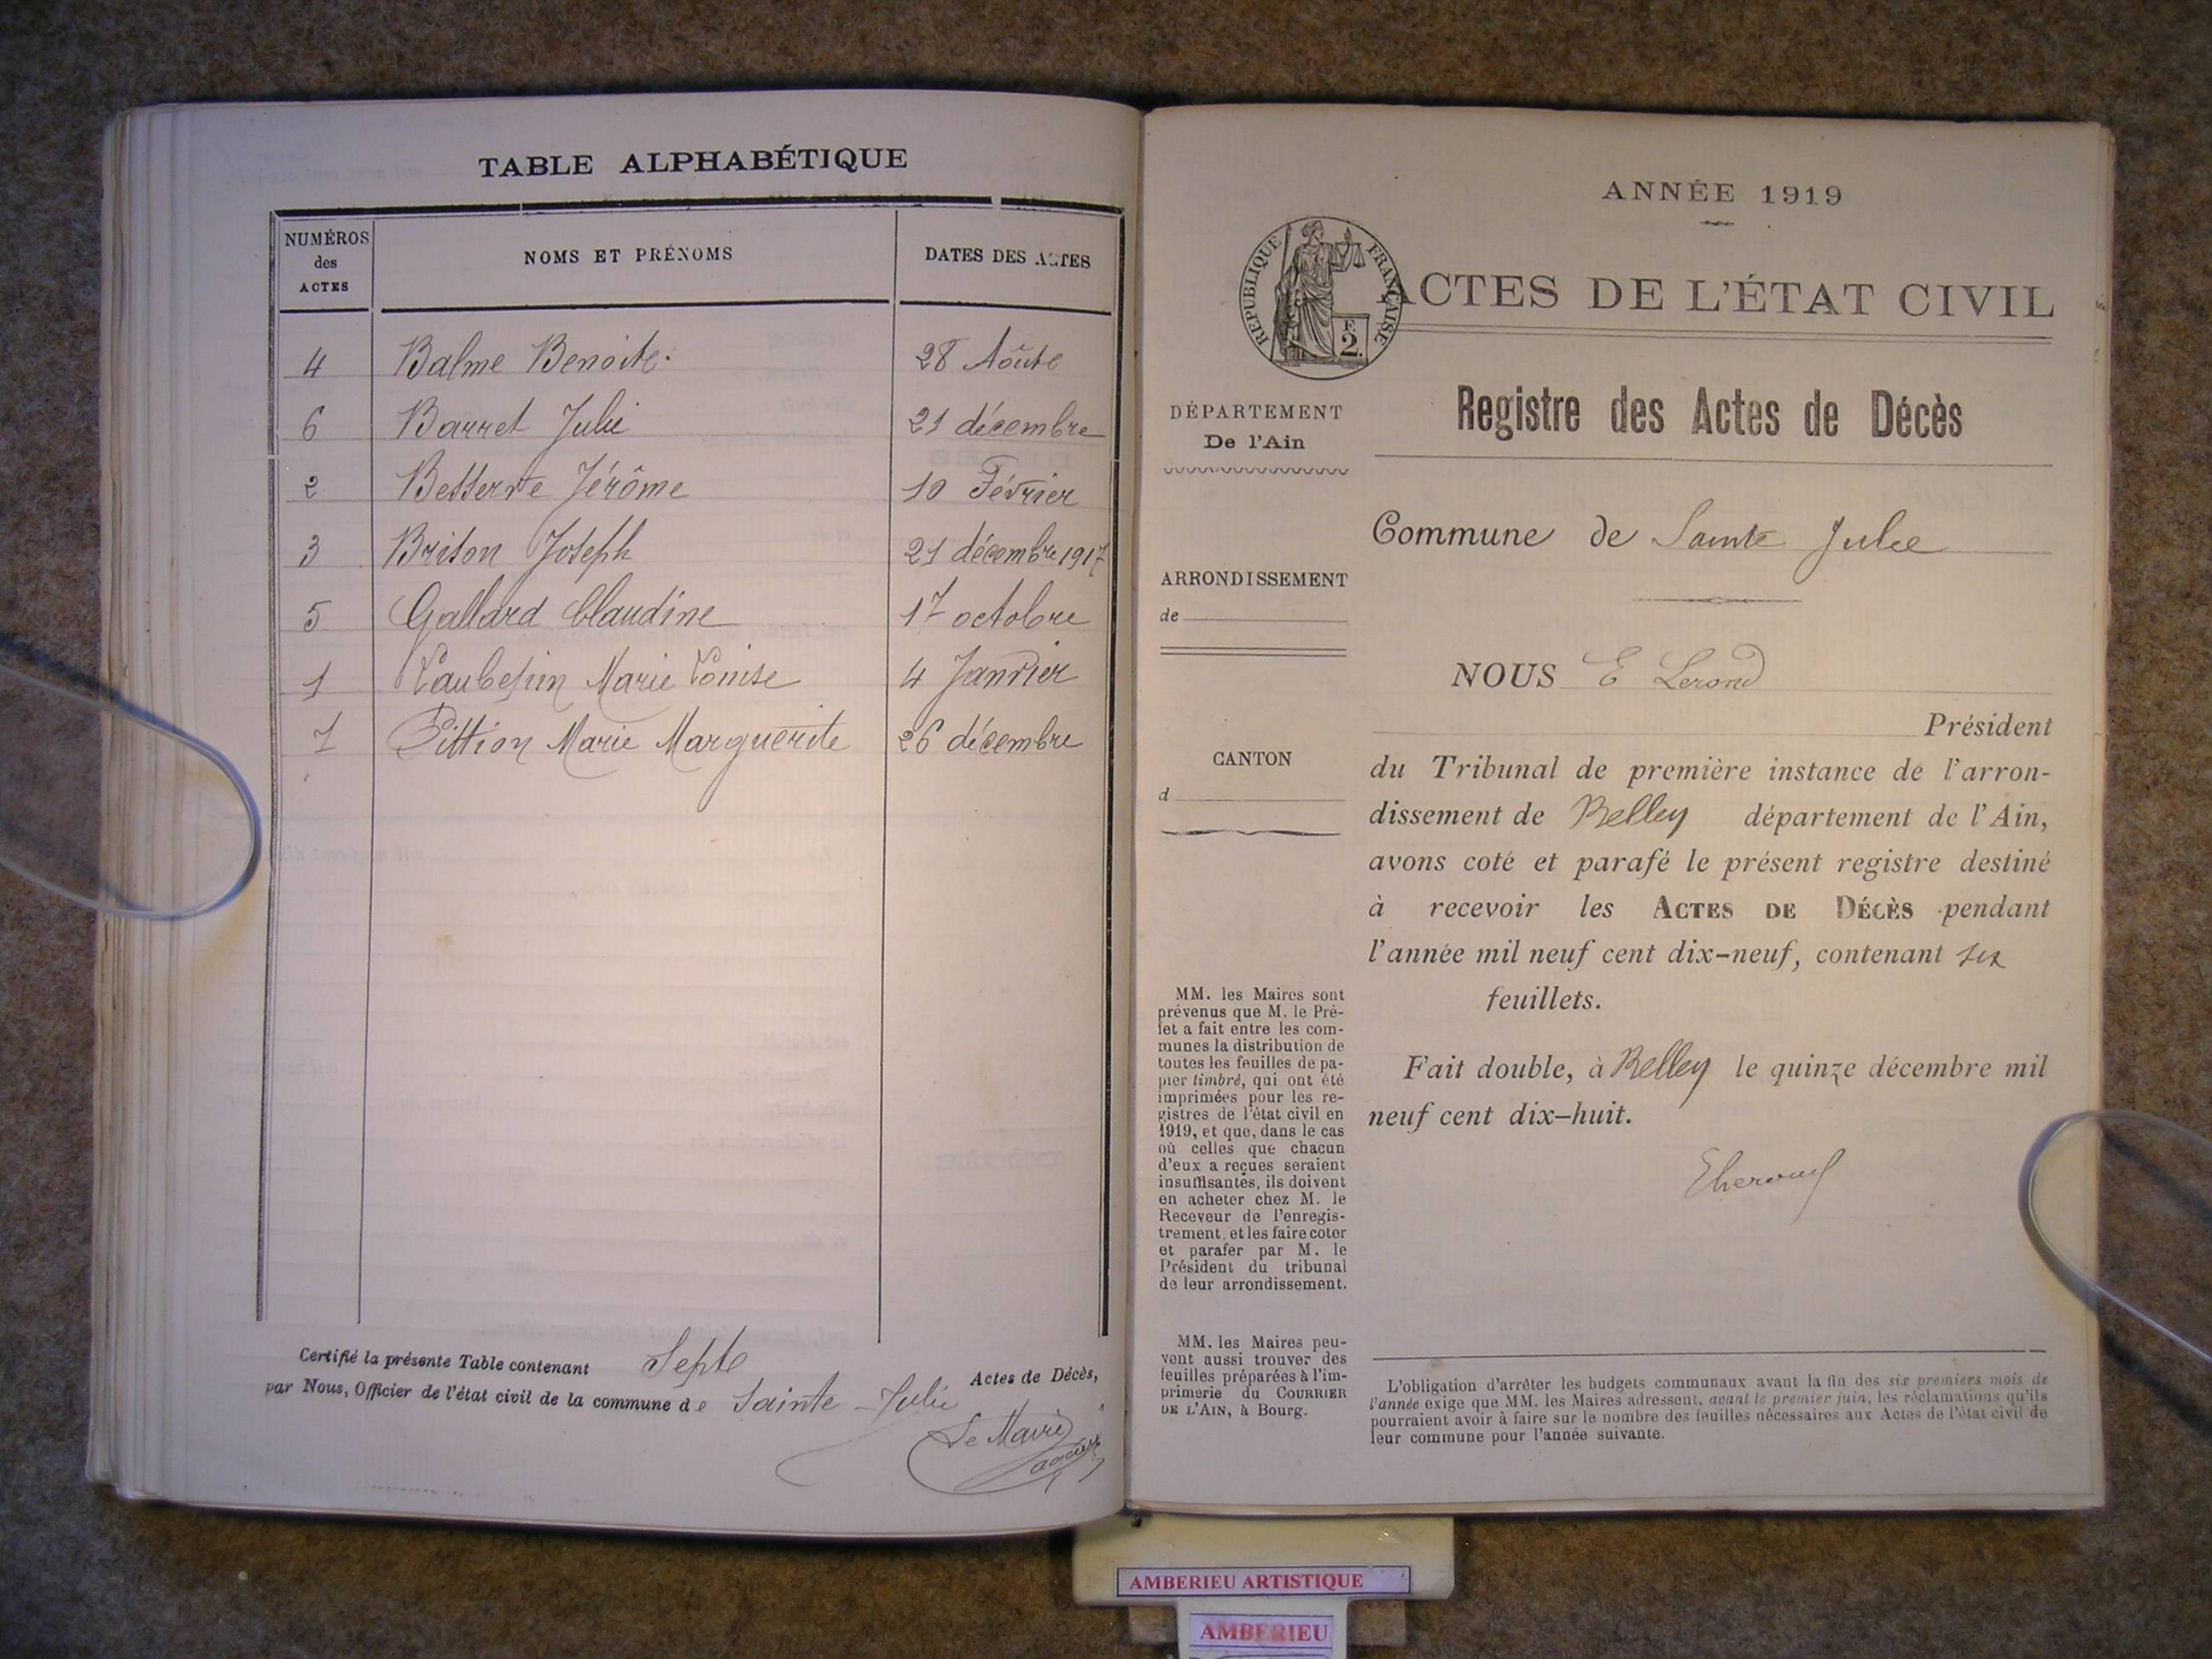 TABLE ALPHABÉTIQUE
NUMÉROS
des
ACTES
NOMS ET PRÉNOMS
DATES DES ACTES
4 Balme Benoite 28 Aoûte
6 Barret Julie 21 décembre
2 Besserve Jérôme 10 Février
3 Brison Joseph 21 décembre 1917
5 Gallard Claudine 17 octobre
1 Laubepin Marie Louise 4 Janvier
7 Pittion Marie Marguerite 26 décembre
Certifié la présente Table contenant Septe Actes de Décès,
par Nous, Officier de l'état civil de la commune de Sainte-Julie
Le Maire
ANNÉE 1919
RÉPUBLIQUE FRANÇAISE
E.
2.
ACTES DE L'ÉTAT CIVIL
DÉPARTEMENT
De l'Ain
Registre des Actes de Décès
Commune de Sainte Julie
ARRONDISSEMENT
de
NOUS E Lerond
Président
CANTON
d
du Tribunal de première instance de l'arron-
dissement de Belley département de l'Ain,
avons coté et parafé le présent registre destiné
à recevoir les ACTES DE DÉCÈS pendant
l'année mil neuf cent dix-neuf, contenant six
feuillets.
Fait double, à Belley le quinze décembre mil
neuf cent dix-huit.
MM. les Maires sont
prévenus que M. le Pré-
fet a fait entre les com-
munes la distribution de
toutes les feuilles de pa-
pier timbré, qui ont été
imprimées pour les re-
gistres de l'état civil en
1919, et que, dans le cas
où celles que chacun
d'eux a reçues seraient
insuffisantes, ils doivent
en acheter chez M. le
Receveur de l'enregis-
trement, et les faire coter
et parafer par M. le
Président du tribunal
de leur arrondissement.
MM. les Maires peu-
vent aussi trouver des
feuilles préparées à l'im-
primerie du COURRIER
DE L'AIN, à Bourg.
L'obligation d'arrêter les budgets communaux avant la fin des six premiers mois de
l'année exige que MM. les Maires adressent, avant le premier juin, les réclamations qu'ils
pourraient avoir à faire sur le nombre des feuilles nécessaires aux Actes de l'état civil de
leur commune pour l'année suivante.
AMBERIEU ARTISTIQUE
AMBERIEU